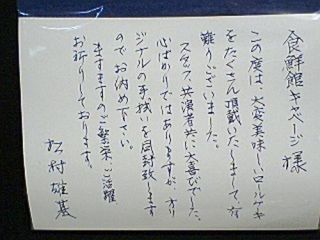 食鮮館キャベージ様
この度は、大変美味しいロールケーキ
をたくさん頂戴いたしまして有
難うございました。
スタッフ、共演者共に大喜びでした。
心ばかりではありますが、オリ
ジナルの手拭いを同封致します
のでお納め下さい。
ますますのご繁栄、ご活躍
お祈りしております。
松村雄基